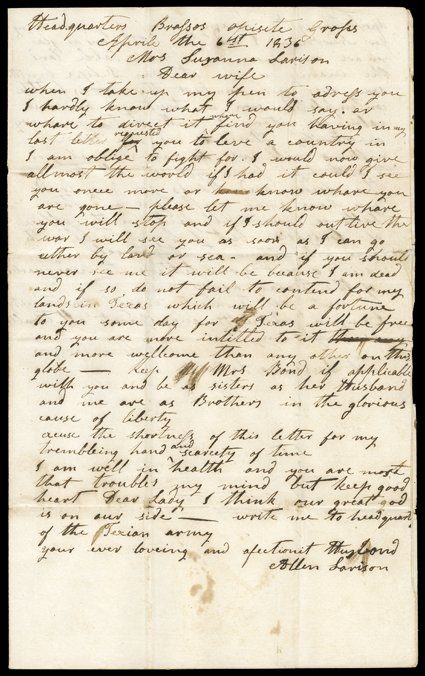 Headquarters Brassos opisite Grosses
Aprile the 6st 1836
Mrs Susanna Larison
Dear wife
when I take up my pen to adress you
I hardly know what I would say. or
whare to direct it where find you having in my
last letter requested you to leve a country in
I am oblige to fight for. I would now give
allmost the world if I had it could I see
you onece more or know whare you
are gone — please let me know whare
you will stop and if I should outlive the
war I will see you as soon as I can go
uther by land or sea - and if you should
never see me it will be because I am dead
and if so do not fail to contend for my
lands in Texas which will be a fortune
to you some day for Texas will be free
and you are more intitled to it
and more wellcome than any other on this
globe — keep Mrs Bond if applicable
with you and be as sisters as her Husband
and me are as Brothers in the glorious
cause of liberty
acuse the shortness of this letter for my
trembleing hand and scarcety of time
I am well in health and you are most
that troubles my mind but keep good
heart Dear Lady I think our great god
is on our side — write me to headquart
of the Texian army
your ever loveing and afectionit Husbond
Allen Larison